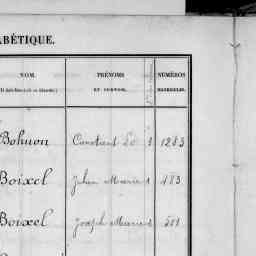 ABÉTIQUE.
NOM. PRÉNOMS ET SURNOM. NUMÉROS MATRICULES.
Bohuon Constant 1283
Boixel Julien Marie 1 483
Boixel Joseph Marie 551